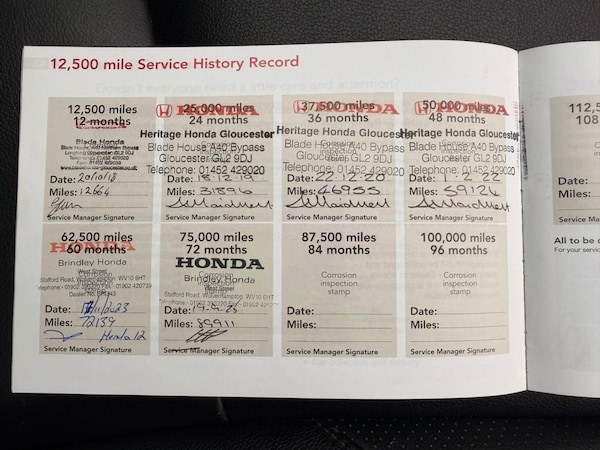 12,500 mile Service History Record
12,500 miles
12 months
Blade Honda
Date:
Miles: 12664
Service Manager Signature
25,000 miles
HONDA
24 months
Heritage Honda Gloucester
Blade House A40 Bypass
Gloucester GL2 9DJ
Telephone: 01452 429020
Date: 18.12.19
Miles: 31896
Service Manager Signature
37,500 miles
HONDA
36 months
Heritage Honda Gloucester
Blade House A40 Bypass
Gloucester GL2 9DJ
Telephone: 01452 429020
Date: 22.12.20
Miles: 46955
Service Manager Signature
50,000 miles
HONDA
48 months
Heritage Honda Gloucester
Blade House A40 Bypass
Gloucester GL2 9DJ
Telephone: 01452 429020
Date: 1.2.22
Miles: 59124
Service Manager Signature
62,500 miles
HONDA
60 months
Brindley Honda
West Street
Stafford Road, Wolverhampton WV10 6HT
Date:
Miles: 72139
Service Manager Signature
75,000 miles
72 months
HONDA
Brindley Honda
West Street
Stafford Road, Wolverhampton, WV10 6HT
Date:
Miles: 89911
Service Manager Signature
87,500 miles
84 months
Corrosion
inspection
stamp
Date:
Miles:
Service Manager Signature
100,000 miles
96 months
Corrosion
inspection
stamp
Date:
Miles:
Service Manager Signature
112,5
108
Date:
Miles:
Service Ma
All to be
For your servic